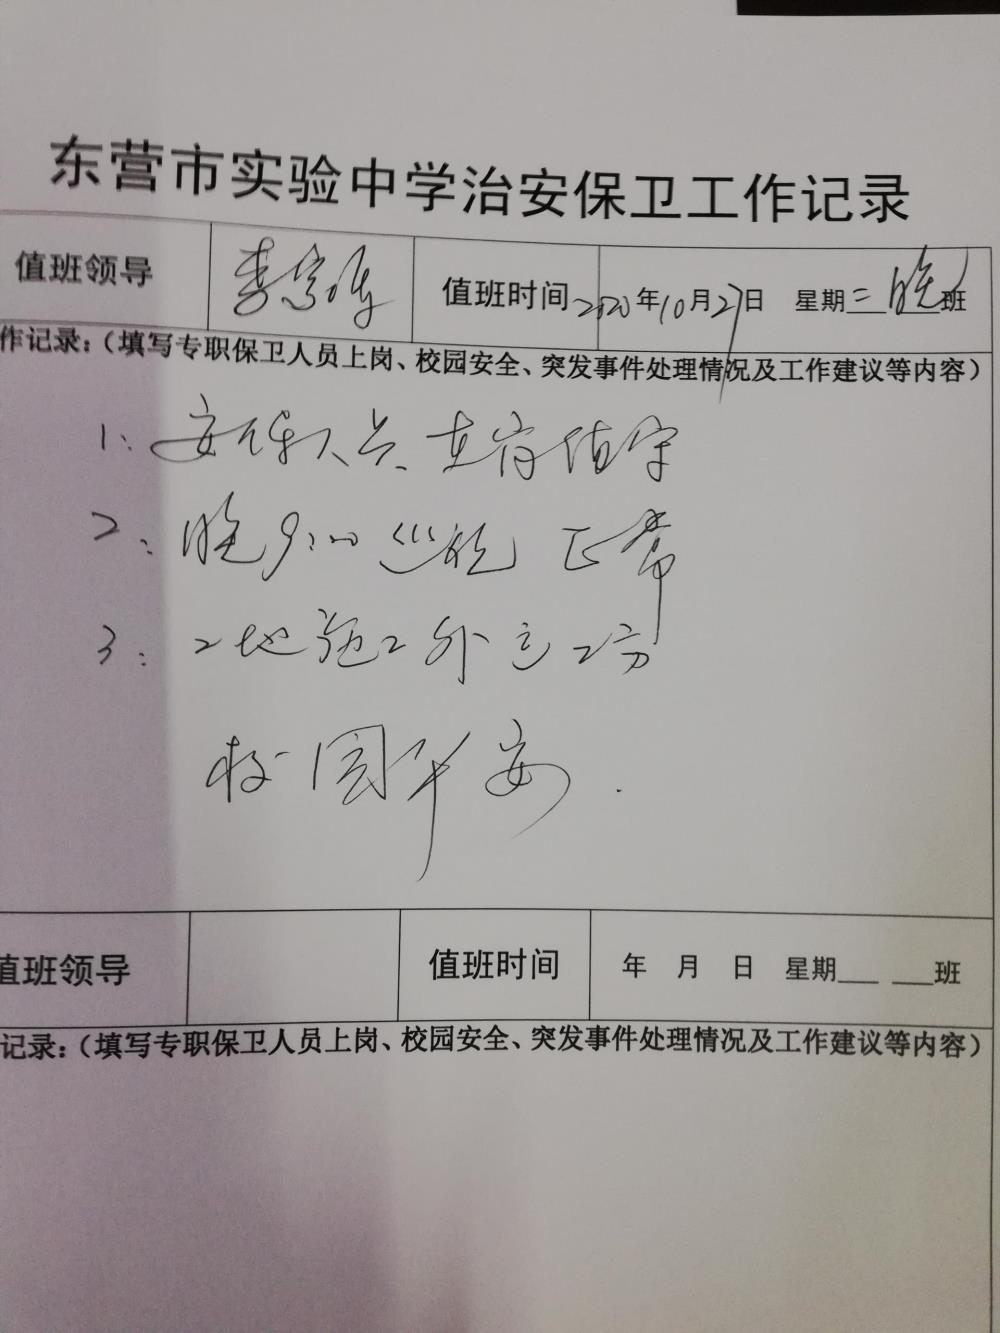 东营市实验中学治安保卫工作记录
值班领导 李 值班时间 2020年10月27日 星期二 晚班
作记录：（填写专职保卫人员上岗、校园安全、突发事件处理情况及工作建议等内容）
1：安保人员在岗值守
2：晚9:00巡视正常
3：工地施工外立
校园平安.
值班领导 值班时间 年 月 日 星期___ ___班
记录：（填写专职保卫人员上岗、校园安全、突发事件处理情况及工作建议等内容）